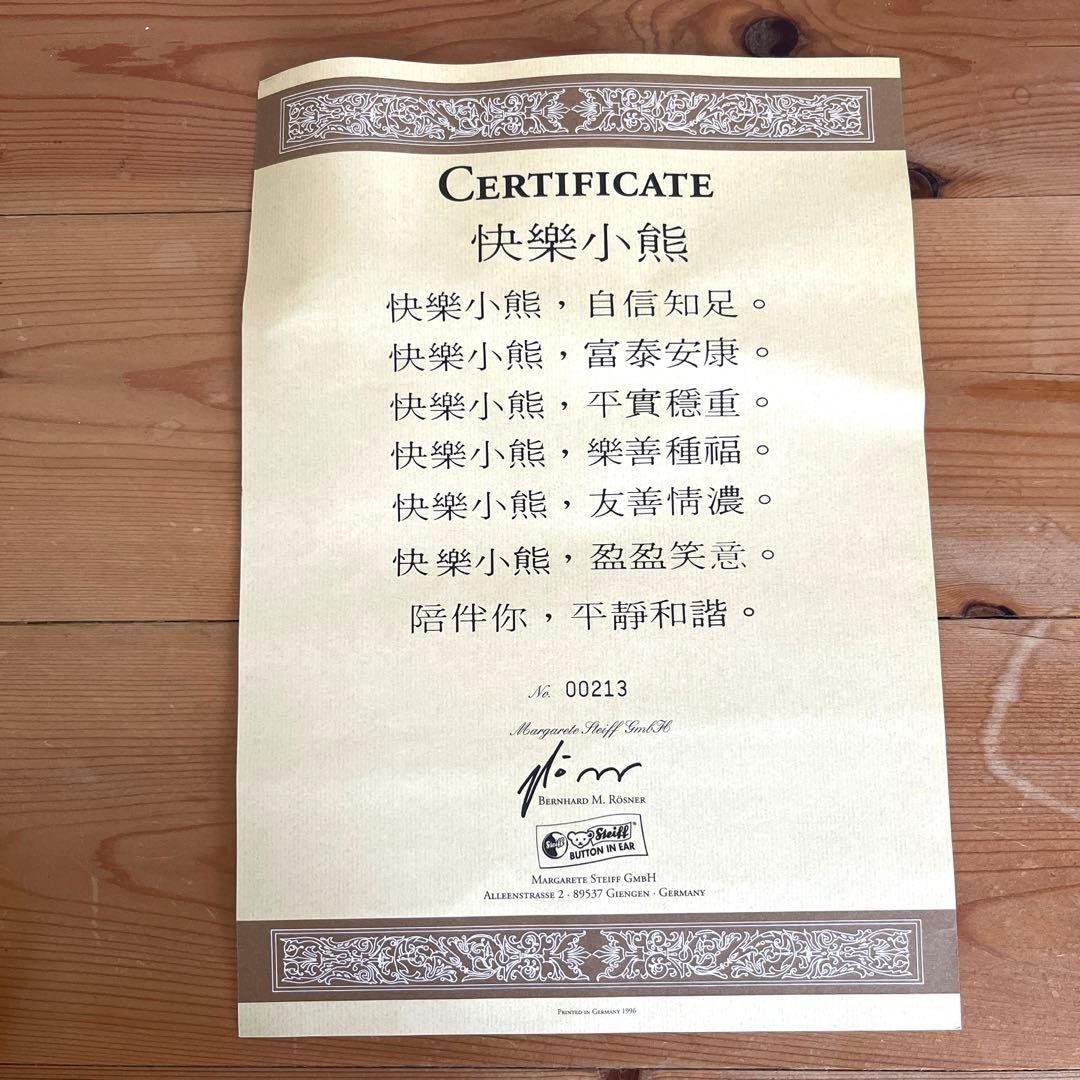 CERTIFICATE
快樂小熊
快樂小熊，自信知足。
快樂小熊，富泰安康。
快樂小熊，平實穩重。
快樂小熊，樂善種福。
快樂小熊，友善情濃。
快樂小熊，盈盈笑意。
陪伴你，平靜和諧。
No. 00213
Margarete Steiff GmbH
BERNHARD M. RÖSNER
Steiff Steiff
BUTTON IN EAR
MARGARETE STEIFF GMBH
ALLEENSTRASSE 2 · 89537 GIENGEN · GERMANY
PRINTED IN GERMANY 1996